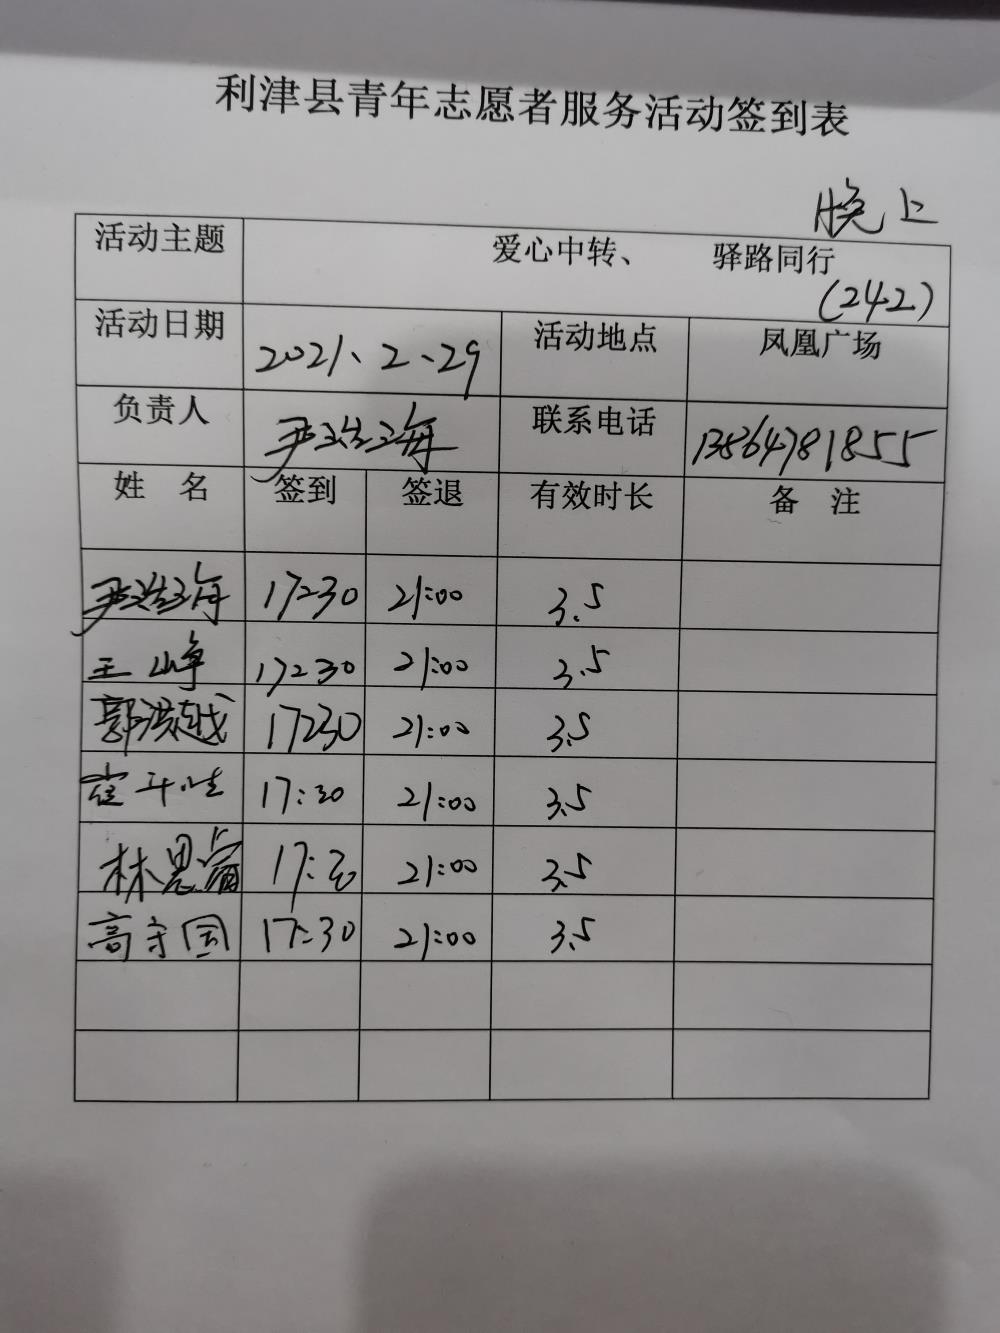 利津县青年志愿者服务活动签到表
晚上
活动主题 爱心中转、 驿路同行
(242)
活动日期 2021、2、29 活动地点 凤凰广场
负责人 尹浩海 联系电话 13864781855
姓 名 签到 签退 有效时长 备 注
尹浩海 17:30 21:00 3.5
王峥 17:30 21:00 3.5
郭洪越 17:30 21:00 3.5
17:30 21:00 3.5
林思 17:30 21:00 3.5
高守国 17:30 21:00 3.5